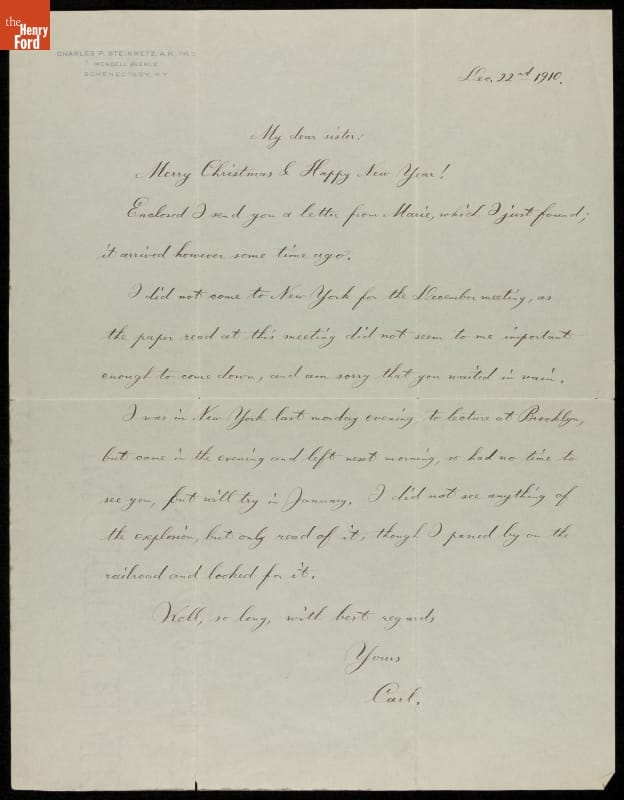 the
Henry
Ford
CHARLES P. STEINMETZ, A.M., PH.D.
WENDELL AVENUE
SCHENECTADY, N.Y.
Dec. 22nd 1910.
My dear sister:
Merry Christmas & Happy New Year!
Enclosed I send you a letter from Marie, which I just found;
it arrived however some time ago.
I did not come to New York for the December meeting, as
the paper read at this meeting did not seem to me important
enough to come down, and am sorry that you waited in vain.
I was in New York last monday evening, to lecture at Brooklyn,
but came in the evening and left next morning, so had no time to
see you, but will try in January. I did not see anything of
the explosion, but only read of it, though I passed by on the
railroad and looked for it.
Well, so long, with best regards
Yours
Carl.